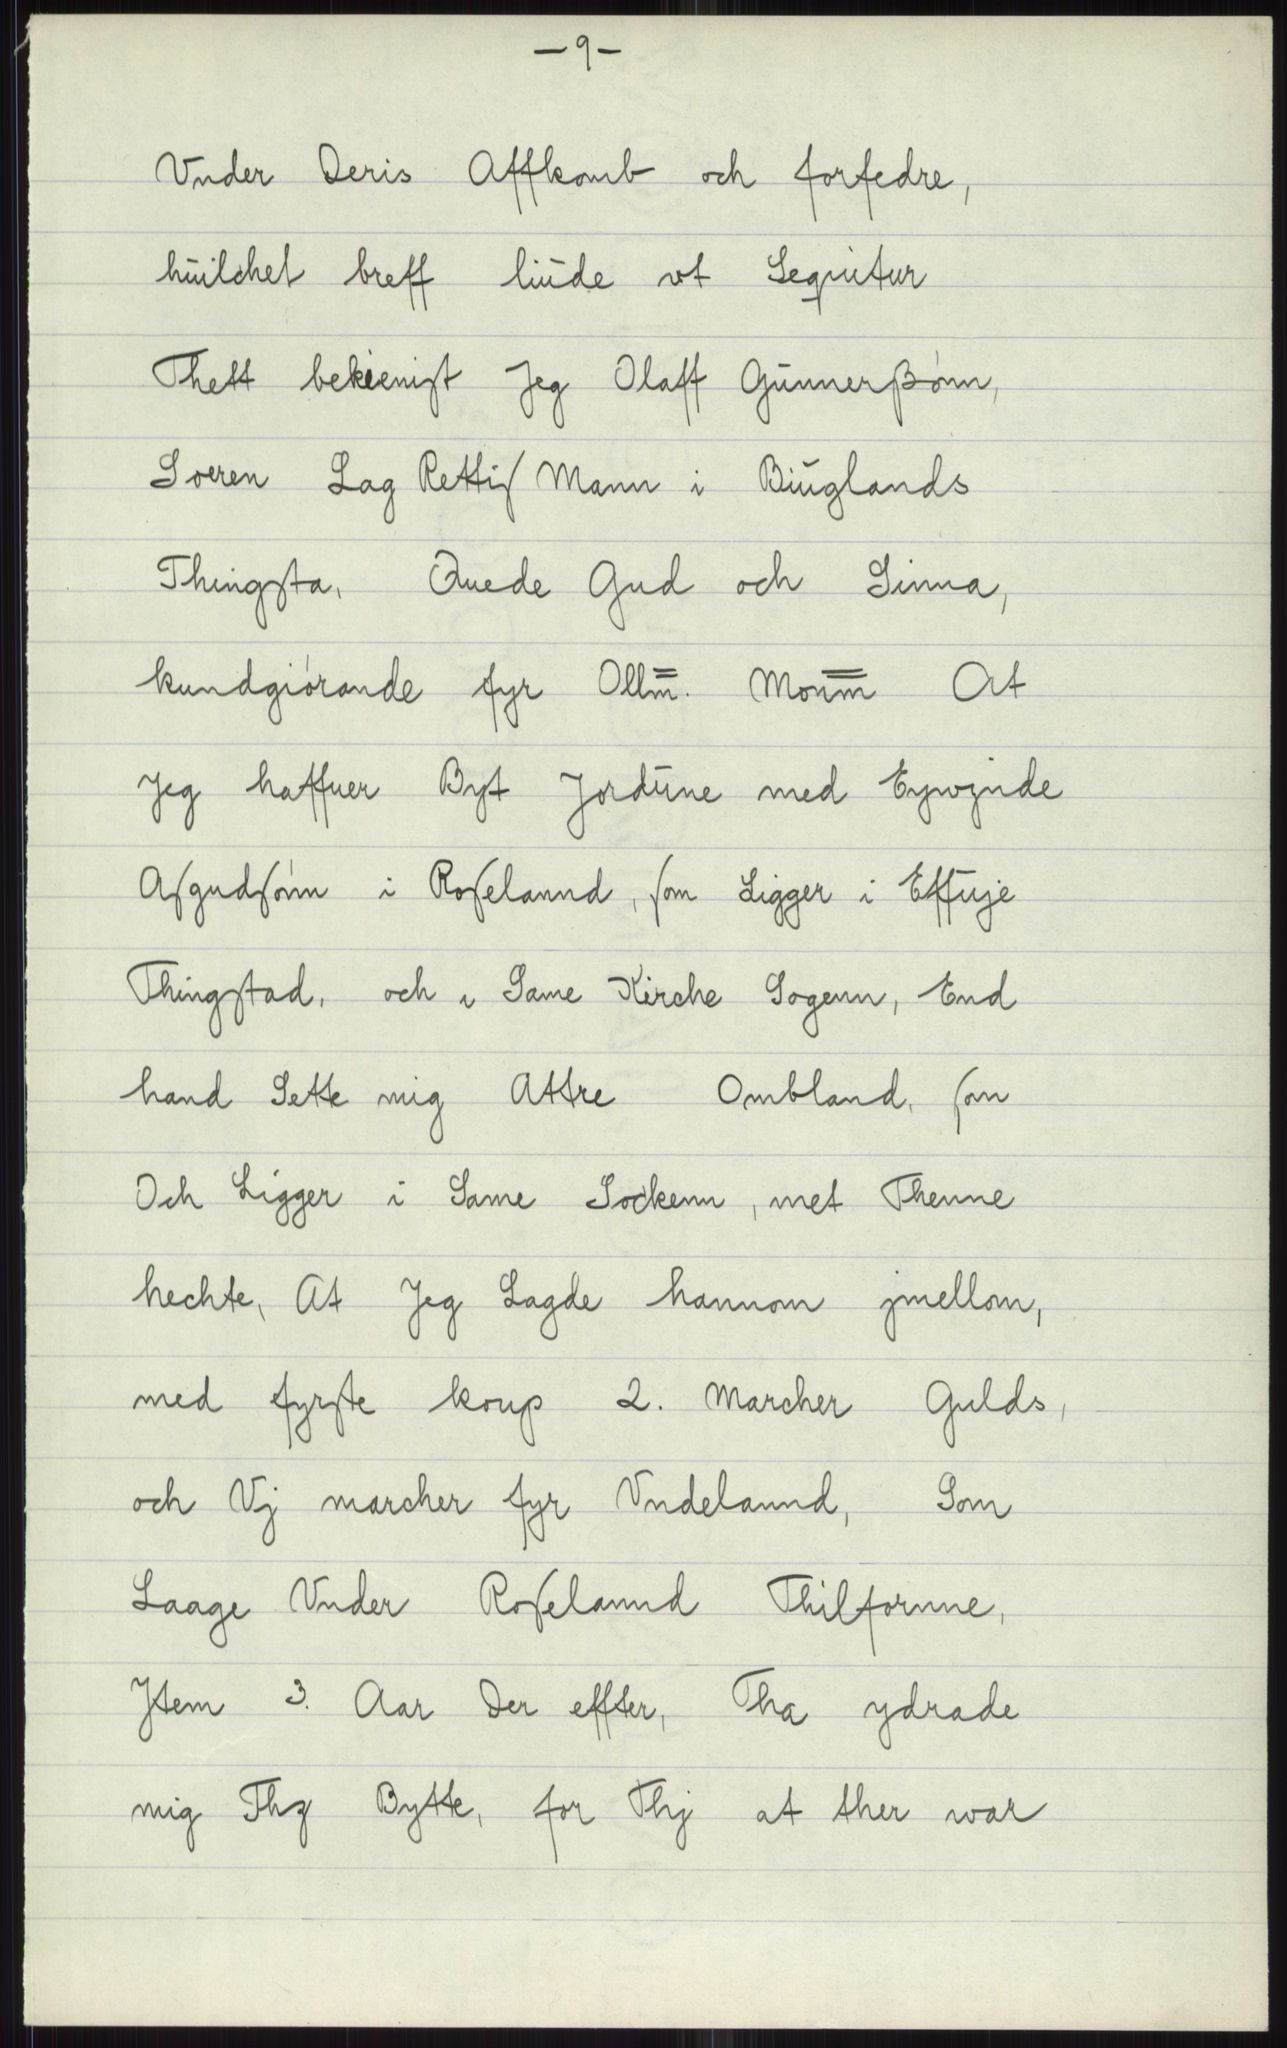 — 9 —
Vnder Deris Affkomb och forfedre,
huilchet breff liūde vt Sequitur
Thett bekienist Jeg Olaff Gūnnerßönn,
Soeren Lag Rettis Mann i Biūglands
Thingsta, Quede Gud och Sinna,
kundgiörande fyr Ollm̿. Monm̿ At
Jeg haffuer Byt Jordūne med Eywinde
Asgudsönn i Roselannd, som Ligger i Effūje
Thingstad, och i Same Kirche Sogenn, End
hand Sette mig Attre Ombland, som
Och Ligger i Same Sockenn, met Thenne
hechte, At Jeg Lagde hannom jmellom,
med fyrste koup 2. Marcher Gulds,
och Vj marcher fyr Vndelannd, Som
Laage Vnder Roselannd Thilfornne,
Jtem 3. Aar Der effter, Tha ydrade
mig Thz Bytte, for Thj at ther war